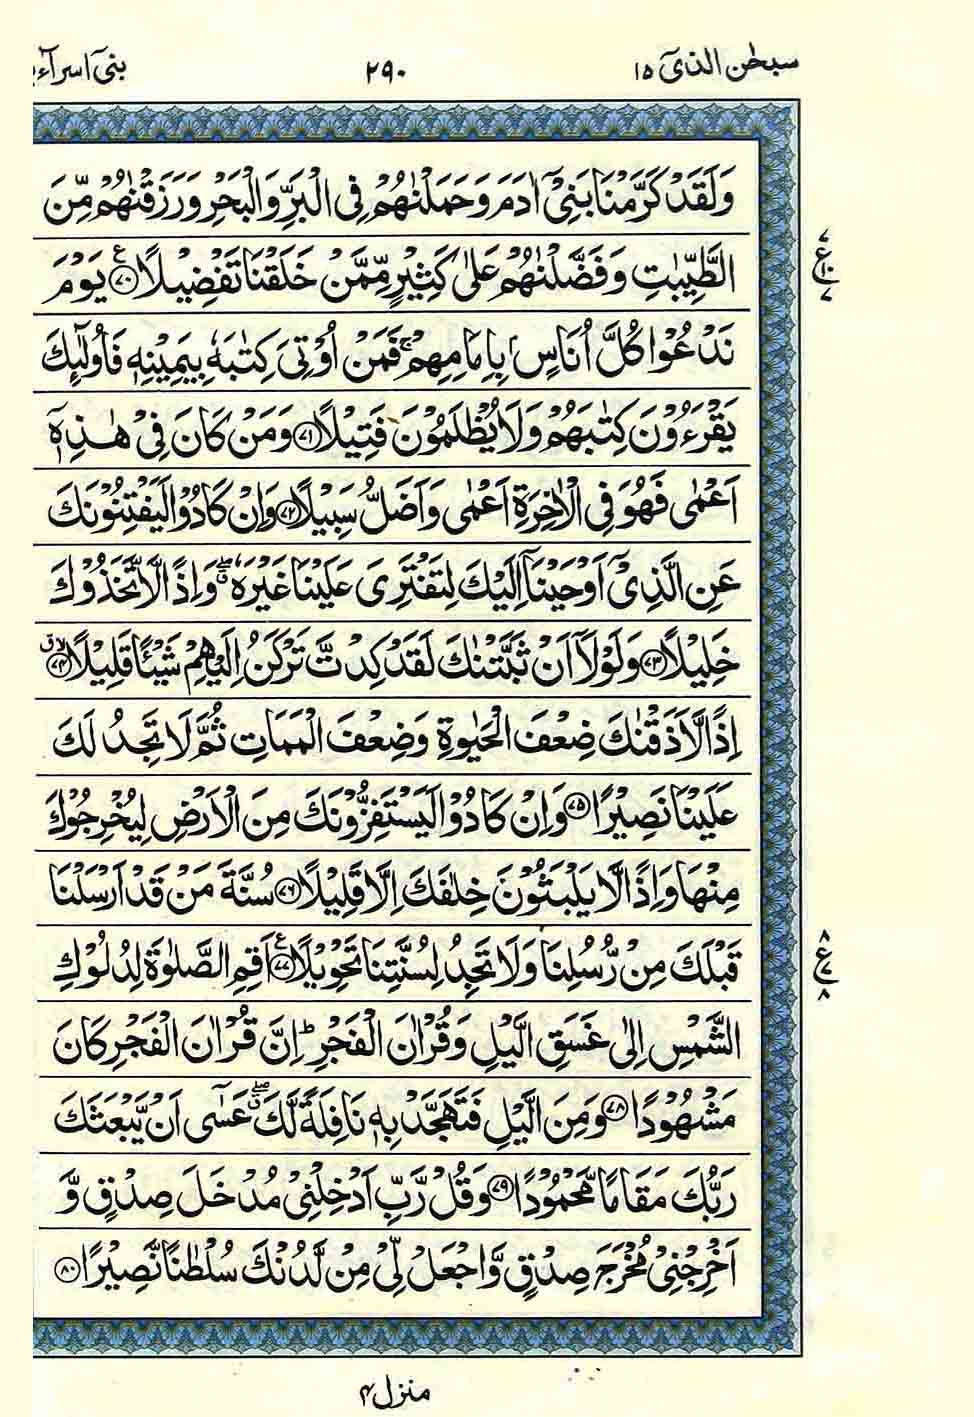 سبحٰن الذیٓ ۱۵
۲۹۰
بنیٓ اسرآءی
وَلَقَدْ كَرَّمْنَا بَنِیْۤ اٰدَمَ وَحَمَلْنٰهُمْ فِی الْبَرِّ وَالْبَحْرِ وَرَزَقْنٰهُمْ مِّنَ
الطَّیِّبٰتِ وَفَضَّلْنٰهُمْ عَلٰی كَثِیْرٍ مِّمَّنْ خَلَقْنَا تَفْضِیْلًا۠ ﴿۷۰﴾ یَوْمَ
نَدْعُوْا كُلَّ اُنَاسٍۭ بِاِمَامِهِمْ ۚ فَمَنْ اُوْتِیَ كِتٰبَهٗ بِیَمِیْنِهٖ فَاُولٰٓئِكَ
یَقْرَءُوْنَ كِتٰبَهُمْ وَلَا یُظْلَمُوْنَ فَتِیْلًا ﴿۷۱﴾ وَمَنْ كَانَ فِیْ هٰذِهٖۤ
اَعْمٰی فَهُوَ فِی الْاٰخِرَةِ اَعْمٰی وَاَضَلُّ سَبِیْلًا ﴿۷۲﴾ وَاِنْ كَادُوْا لَیَفْتِنُوْنَكَ
عَنِ الَّذِیْۤ اَوْحَیْنَاۤ اِلَیْكَ لِتَفْتَرِیَ عَلَیْنَا غَیْرَهٗ ۖۗ وَاِذًا لَّاتَّخَذُوْكَ
خَلِیْلًا ﴿۷۳﴾ وَلَوْلَاۤ اَنْ ثَبَّتْنٰكَ لَقَدْ كِدْتَّ تَرْكَنُ اِلَیْهِمْ شَیْـًٔا قَلِیْلًا ۗۙ ﴿۷۴﴾
اِذًا لَّاَذَقْنٰكَ ضِعْفَ الْحَیٰوةِ وَضِعْفَ الْمَمَاتِ ثُمَّ لَا تَجِدُ لَكَ
عَلَیْنَا نَصِیْرًا ﴿۷۵﴾ وَاِنْ كَادُوْا لَیَسْتَفِزُّوْنَكَ مِنَ الْاَرْضِ لِیُخْرِجُوْكَ
مِنْهَا وَاِذًا لَّا یَلْبَثُوْنَ خِلٰفَكَ اِلَّا قَلِیْلًا ﴿۷۶﴾ سُنَّةَ مَنْ قَدْ اَرْسَلْنَا
قَبْلَكَ مِنْ رُّسُلِنَا وَلَا تَجِدُ لِسُنَّتِنَا تَحْوِیْلًا۠ ﴿۷۷﴾ اَقِمِ الصَّلٰوةَ لِدُلُوْكِ
الشَّمْسِ اِلٰی غَسَقِ الَّیْلِ وَقُرْاٰنَ الْفَجْرِ ؕ اِنَّ قُرْاٰنَ الْفَجْرِ كَانَ
مَشْهُوْدًا ﴿۷۸﴾ وَمِنَ الَّیْلِ فَتَهَجَّدْ بِهٖ نَافِلَةً لَّكَ ۖۗ عَسٰۤی اَنْ یَّبْعَثَكَ
رَبُّكَ مَقَامًا مَّحْمُوْدًا ﴿۷۹﴾ وَقُلْ رَّبِّ اَدْخِلْنِیْ مُدْخَلَ صِدْقٍ وَّ
اَخْرِجْنِیْ مُخْرَجَ صِدْقٍ وَّاجْعَلْ لِّیْ مِنْ لَّدُنْكَ سُلْطٰنًا نَّصِیْرًا ﴿۸۰﴾
۷
ع ۱۰
۷
۸
ع ۷
۸
منزل ۴